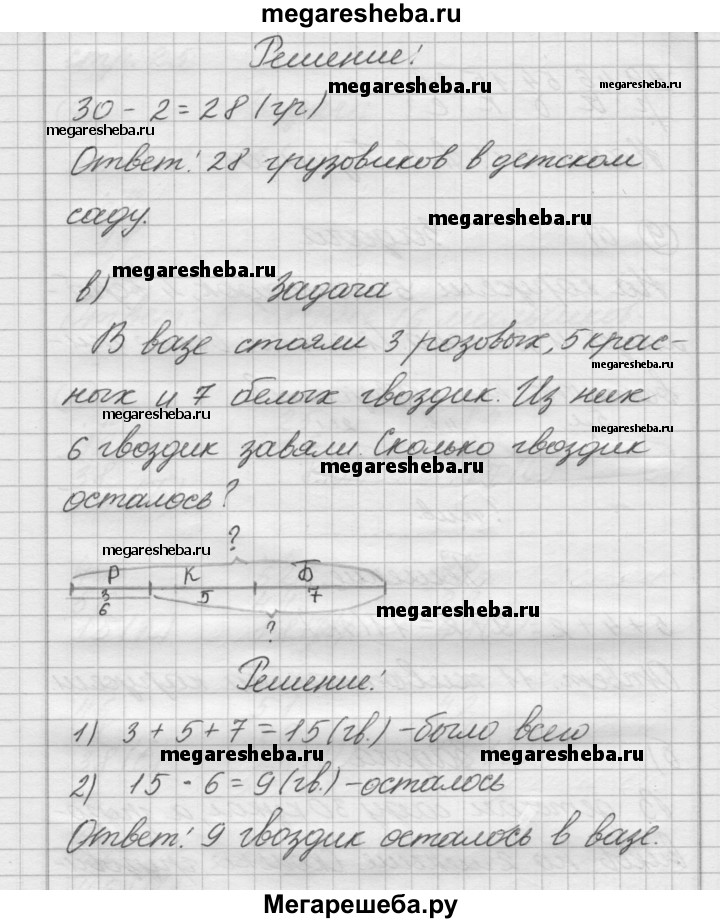 megaresheba.ru
Решение:
megaresheba.ru
30 - 2 = 28 (гр)
megaresheba.ru
Ответ: 28 грузовиков в детском
саду.
megaresheba.ru
megaresheba.ru
в) Задача
В вазе стояли 3 розовых, 5 крас-
megaresheba.ru
ных и 7 белых гвоздик. Из них
megaresheba.ru
megaresheba.ru
6 гвоздик завяли. Сколько гвоздик
megaresheba.ru
осталось?
?
megaresheba.ru
Р К Б
3 5 7
megaresheba.ru
6
?
Решение:
1) 3 + 5 + 7 = 15 (гв.) - было всего
megaresheba.ru megaresheba.ru
2) 15 - 6 = 9 (гв.) - осталось
Ответ: 9 гвоздик осталось в вазе.
Мегарешеба.ру